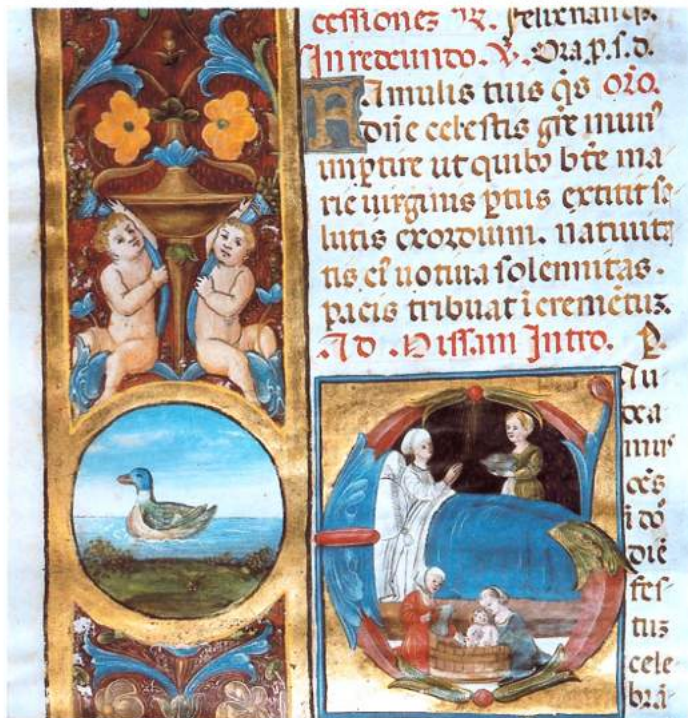 cessiones ℟. felix nanqꝫ.
In secundo. ℣. Ora.p.s.d.
FAmulis tuis q̄s oro.
dn̄e celestis gr̄e mun᷒
imꝑtire ut quibꝫ bt̄e ma
rie uirginis ꝑtus extitit sa
lutis exordium. natiuita
tis ei᷒ uotiua solennitas.
pacis tribuat īcremētuz.
Ad Missam Intro. P.
GAu
dea
mus
oēs
i dō
diē
fes
tuz
cele
brā